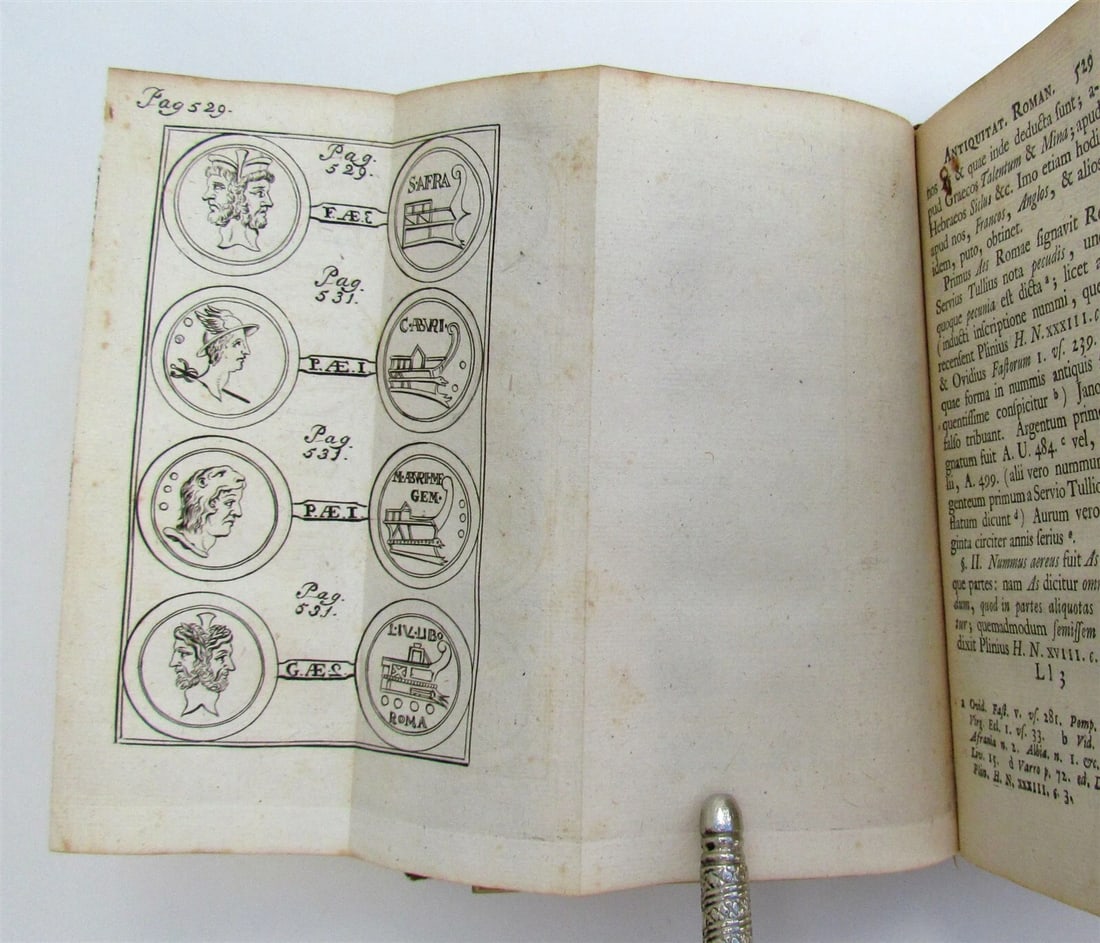 Pag 529.
Pag.
529.
S·AFRA
F.Æ.
Pag.
531.
C·ABVRI·
P.Æ.I
Pag.
531.
M·ABVRI·M·F
GEM·
P.Æ I
Pag.
531.
L·IV·LIBO
G.Æ
ROMA
ANTIQUITAT. ROMAN. 529
nos & quae inde deducta sunt; a-
pud Graecos Talentum & Mina; apud
Hebraeos Siclus &c. Imo etiam hodi
apud nos, Francos, Anglos, & alios
idem, puto, obtinet.
Primus Aes Romae signavit Re
Servius Tullius nota pecudis, un
quoque pecunia est dicta a; licet
(inducti inscriptione nummi, que
recensent Plinius H. N. XXXIII. c.
& Ovidius Fastorum I. vs. 239.
quae forma in nummis antiquis
quentissime conspicitur b) Jano
falso tribuant. Argentum prim
gnatum fuit A. U. 484. c vel,
lii, A. 499. (alii vero nummum
genteum primum a Servio Tullio
flatum dicunt d) Aurum vero
ginta circiter annis serius e.
§. II. Nummus aereus fuit As
que partes: nam As dicitur omne
quod in partes aliquotas
tur; quemadmodum semissem
dixit Plinius H. N. XVIII. c.
Ll 3
a Ovid. Fast. v. vs. 281. Pomp.
Virg. Ecl. 1. vs. 33. b Vid.
Afrania n. 2. Albia. n. 1. &c.
Liv. 15. d Varro p. 72. ed.
Plin. H. N. XXXIII. c. 3.